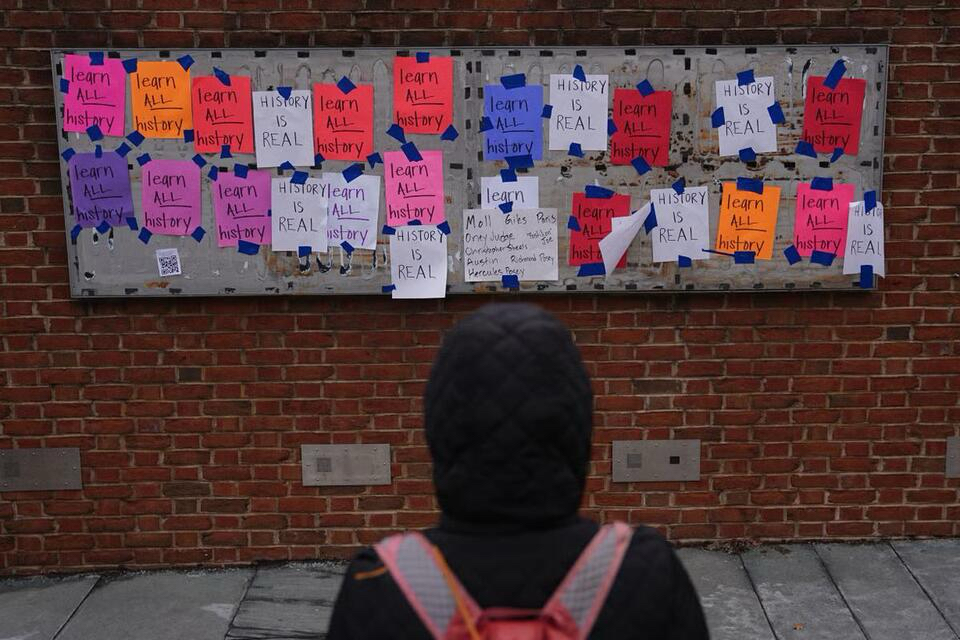 learn
ALL
history
learn
ALL
history
learn
ALL
history
HISTORY
IS
REAL
learn
ALL
history
learn
ALL
history
learn
ALL
history
HISTORY
IS
REAL
learn
ALL
history
HISTORY
IS
REAL
learn
ALL
history
learn
ALL
history
learn
ALL
history
learn
ALL
history
HISTORY
IS
REAL
learn
ALL
history
learn
ALL
history
HISTORY
IS
REAL
Moll Giles Paris
Oney Judge
Christopher Sheels Joe
Austin Richmond Posey
Hercules Posey
learn
ALL
history
HISTORY
IS
REAL
learn
ALL
history
learn
ALL
history
HISTORY
IS
REAL